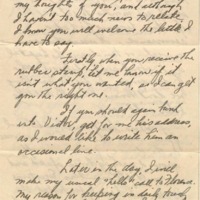 my thoughts of you, and although
I haven't too much news to relate,
I know you will welcome the little I
have to say.
Firstly, when you receive the
rubber stamp, let me know if it
isn't what you wanted, so I can get
you the right one.
If you should again bank
with Victor, get for me his address,
as I would like to write him an
occasional line.
Later in the day, I will
make my usual "hello" call to
My reason for keeping in daily touch